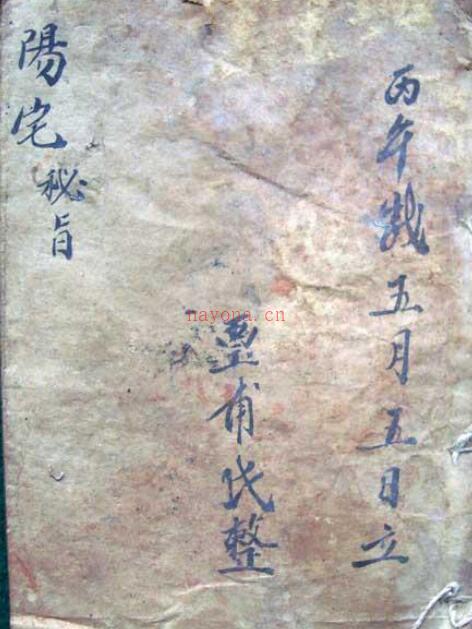 丙午歲五月五日立
豊甫氏整
陽宅秘旨
nayona.cn